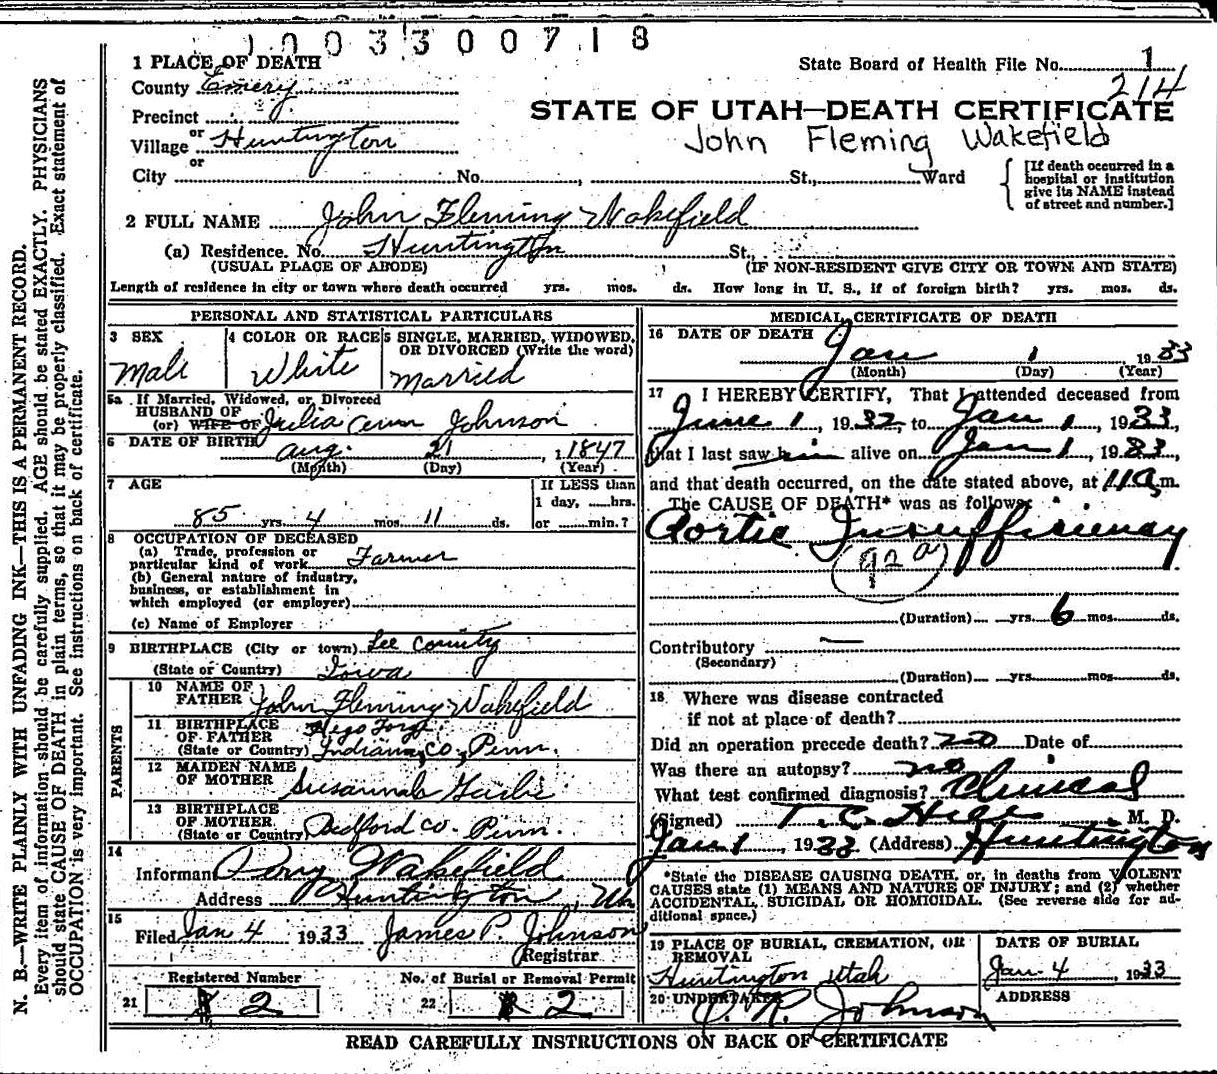 1003300718
State Board of Health File No. 1
214
1 PLACE OF DEATH
County Emery
STATE OF UTAH—DEATH CERTIFICATE
Precinct
or
Village Huntington
John Fleming Wakefield
or
City No. , St., Ward
[If death occurred in a
hospital or institution
give its NAME instead
of street and number.]
2 FULL NAME John Fleming Wakefield
(a) Residence. No. Huntington St.,
(USUAL PLACE OF ABODE) (IF NON-RESIDENT GIVE CITY OR TOWN AND STATE)
Length of residence in city or town where death occurred yrs. mos. ds. How long in U. S., if of foreign birth? yrs. mos. ds.
PERSONAL AND STATISTICAL PARTICULARS
3 SEX
Male
4 COLOR OR RACE
White
5 SINGLE, MARRIED, WIDOWED,
OR DIVORCED (Write the word)
Married
5a If Married, Widowed, or Divorced
HUSBAND OF
(or) WIFE OF Julia Ann Johnson
6 DATE OF BIRTH Aug. 21, 1847
(Month) (Day) (Year)
7 AGE
85 yrs. 4 mos. 11 ds.
If LESS than
1 day, hrs.
or min.?
8 OCCUPATION OF DECEASED
(a) Trade, profession or
particular kind of work Farmer
(b) General nature of industry,
business, or establishment in
which employed (or employer)
(c) Name of Employer
9 BIRTHPLACE (City or town) Lee County
(State or Country) Iowa
PARENTS
10 NAME OF
FATHER John Fleming Wakefield
11 BIRTHPLACE
OF FATHER
(State or Country) Indiana, Co, Penn.
12 MAIDEN NAME
OF MOTHER Susannah
13 BIRTHPLACE
OF MOTHER
(State or Country) Bedford co. Penn.
14
Informant Pery Wakefield
Address Huntington, Ut
15
Filed Jan 4 1933 James P. Johnson
Registrar
Registered Number
21 2
No. of Burial or Removal Permit
22 2
MEDICAL CERTIFICATE OF DEATH
16 DATE OF DEATH
Jan 1 1933
(Month) (Day) (Year)
17 I HEREBY CERTIFY, That I attended deceased from
June 1, 1932, to Jan 1, 1933,
that I last saw him alive on Jan 1, 1933,
and that death occurred, on the date stated above, at 11 a.m.
The CAUSE OF DEATH* was as follows:
Aortic Insufficiency
92a
(Duration) yrs. 6 mos. ds.
Contributory —
(Secondary)
(Duration) yrs. mos. ds.
18 Where was disease contracted
if not at place of death?
Did an operation precede death? no Date of
Was there an autopsy? no
What test confirmed diagnosis? Clinical
(Signed) T. C. Hill, M. D.
Jan 1, 1933 (Address) Huntington
*State the DISEASE CAUSING DEATH, or, in deaths from VIOLENT
CAUSES state (1) MEANS AND NATURE OF INJURY; and (2) whether
ACCIDENTAL, SUICIDAL OR HOMICIDAL. (See reverse side for ad-
ditional space.)
19 PLACE OF BURIAL, CREMATION, OR
REMOVAL
Huntington Utah
DATE OF BURIAL
Jan 4, 1933
20 UNDERTAKER
O. R. Johnson
ADDRESS
READ CAREFULLY INSTRUCTIONS ON BACK OF CERTIFICATE
N. B.—WRITE PLAINLY WITH UNFADING INK—THIS IS A PERMANENT RECORD.
Every item of information should be carefully supplied. AGE should be stated EXACTLY. PHYSICIANS
should state CAUSE OF DEATH in plain terms, so that it may be properly classified. Exact statement of
OCCUPATION is very important. See instructions on back of certificate.